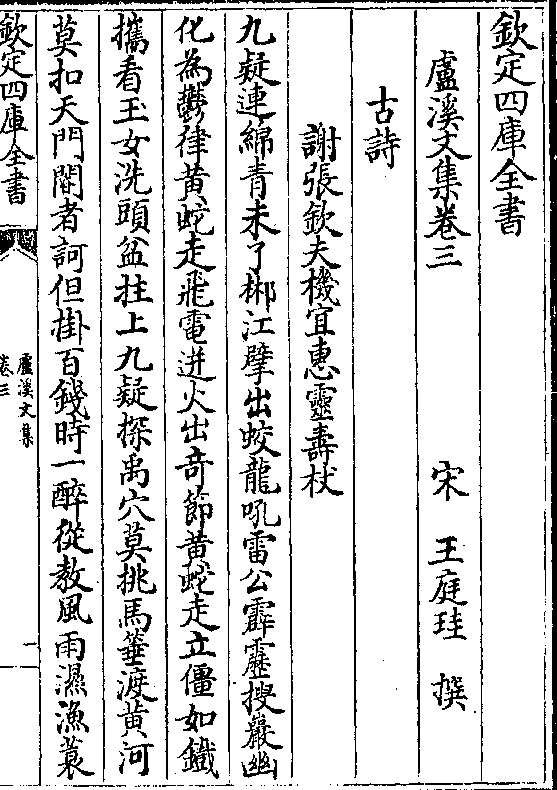 欽定四庫全書
盧溪文集卷三 宋 王庭珪 撰
古詩
謝張欽夫機宜惠靈壽杖
九疑連綿青未了郴江擘出蛟龍吼雷公霹靂搜巖幽
化為鬱律黄蛇走飛電迸火出奇節黄蛇走立僵如鐵
攜看玉女洗頭盆拄上九疑探禹穴莫挑馬箠渡黄河
莫扣天門閽者訶但掛百錢時一醉從教風雨濕漁蓑
欽定四庫全書
盧溪文集
卷三
一